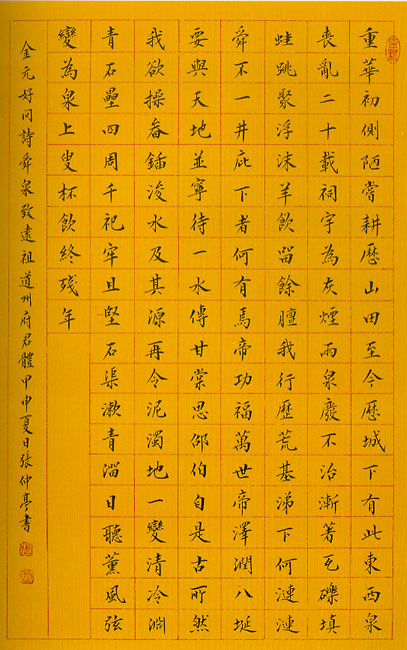 重華初側陋嘗耕歷山田至今歷城下有此東西泉
喪亂二十載祠宇為灰煙兩泉廢不治漸著瓦礫填
蛙跳聚浮沫羊飲留餘膻我行歷荒基涕下何漣漣
舜不一井庇下者何有焉帝功福萬世帝澤潤八埏
要與天地並寧待一水傳甘棠思邵伯自是古所然
我欲操畚鍤浚水及其源再令泥濁地一變清泠淵
青石壘四周千祀牢且堅石渠漱青溜日聽薰風弦
變為泉上叟杯飲終殘年
金元好問詩舜泉效遠祖道州府君體甲申夏日張仲亭書